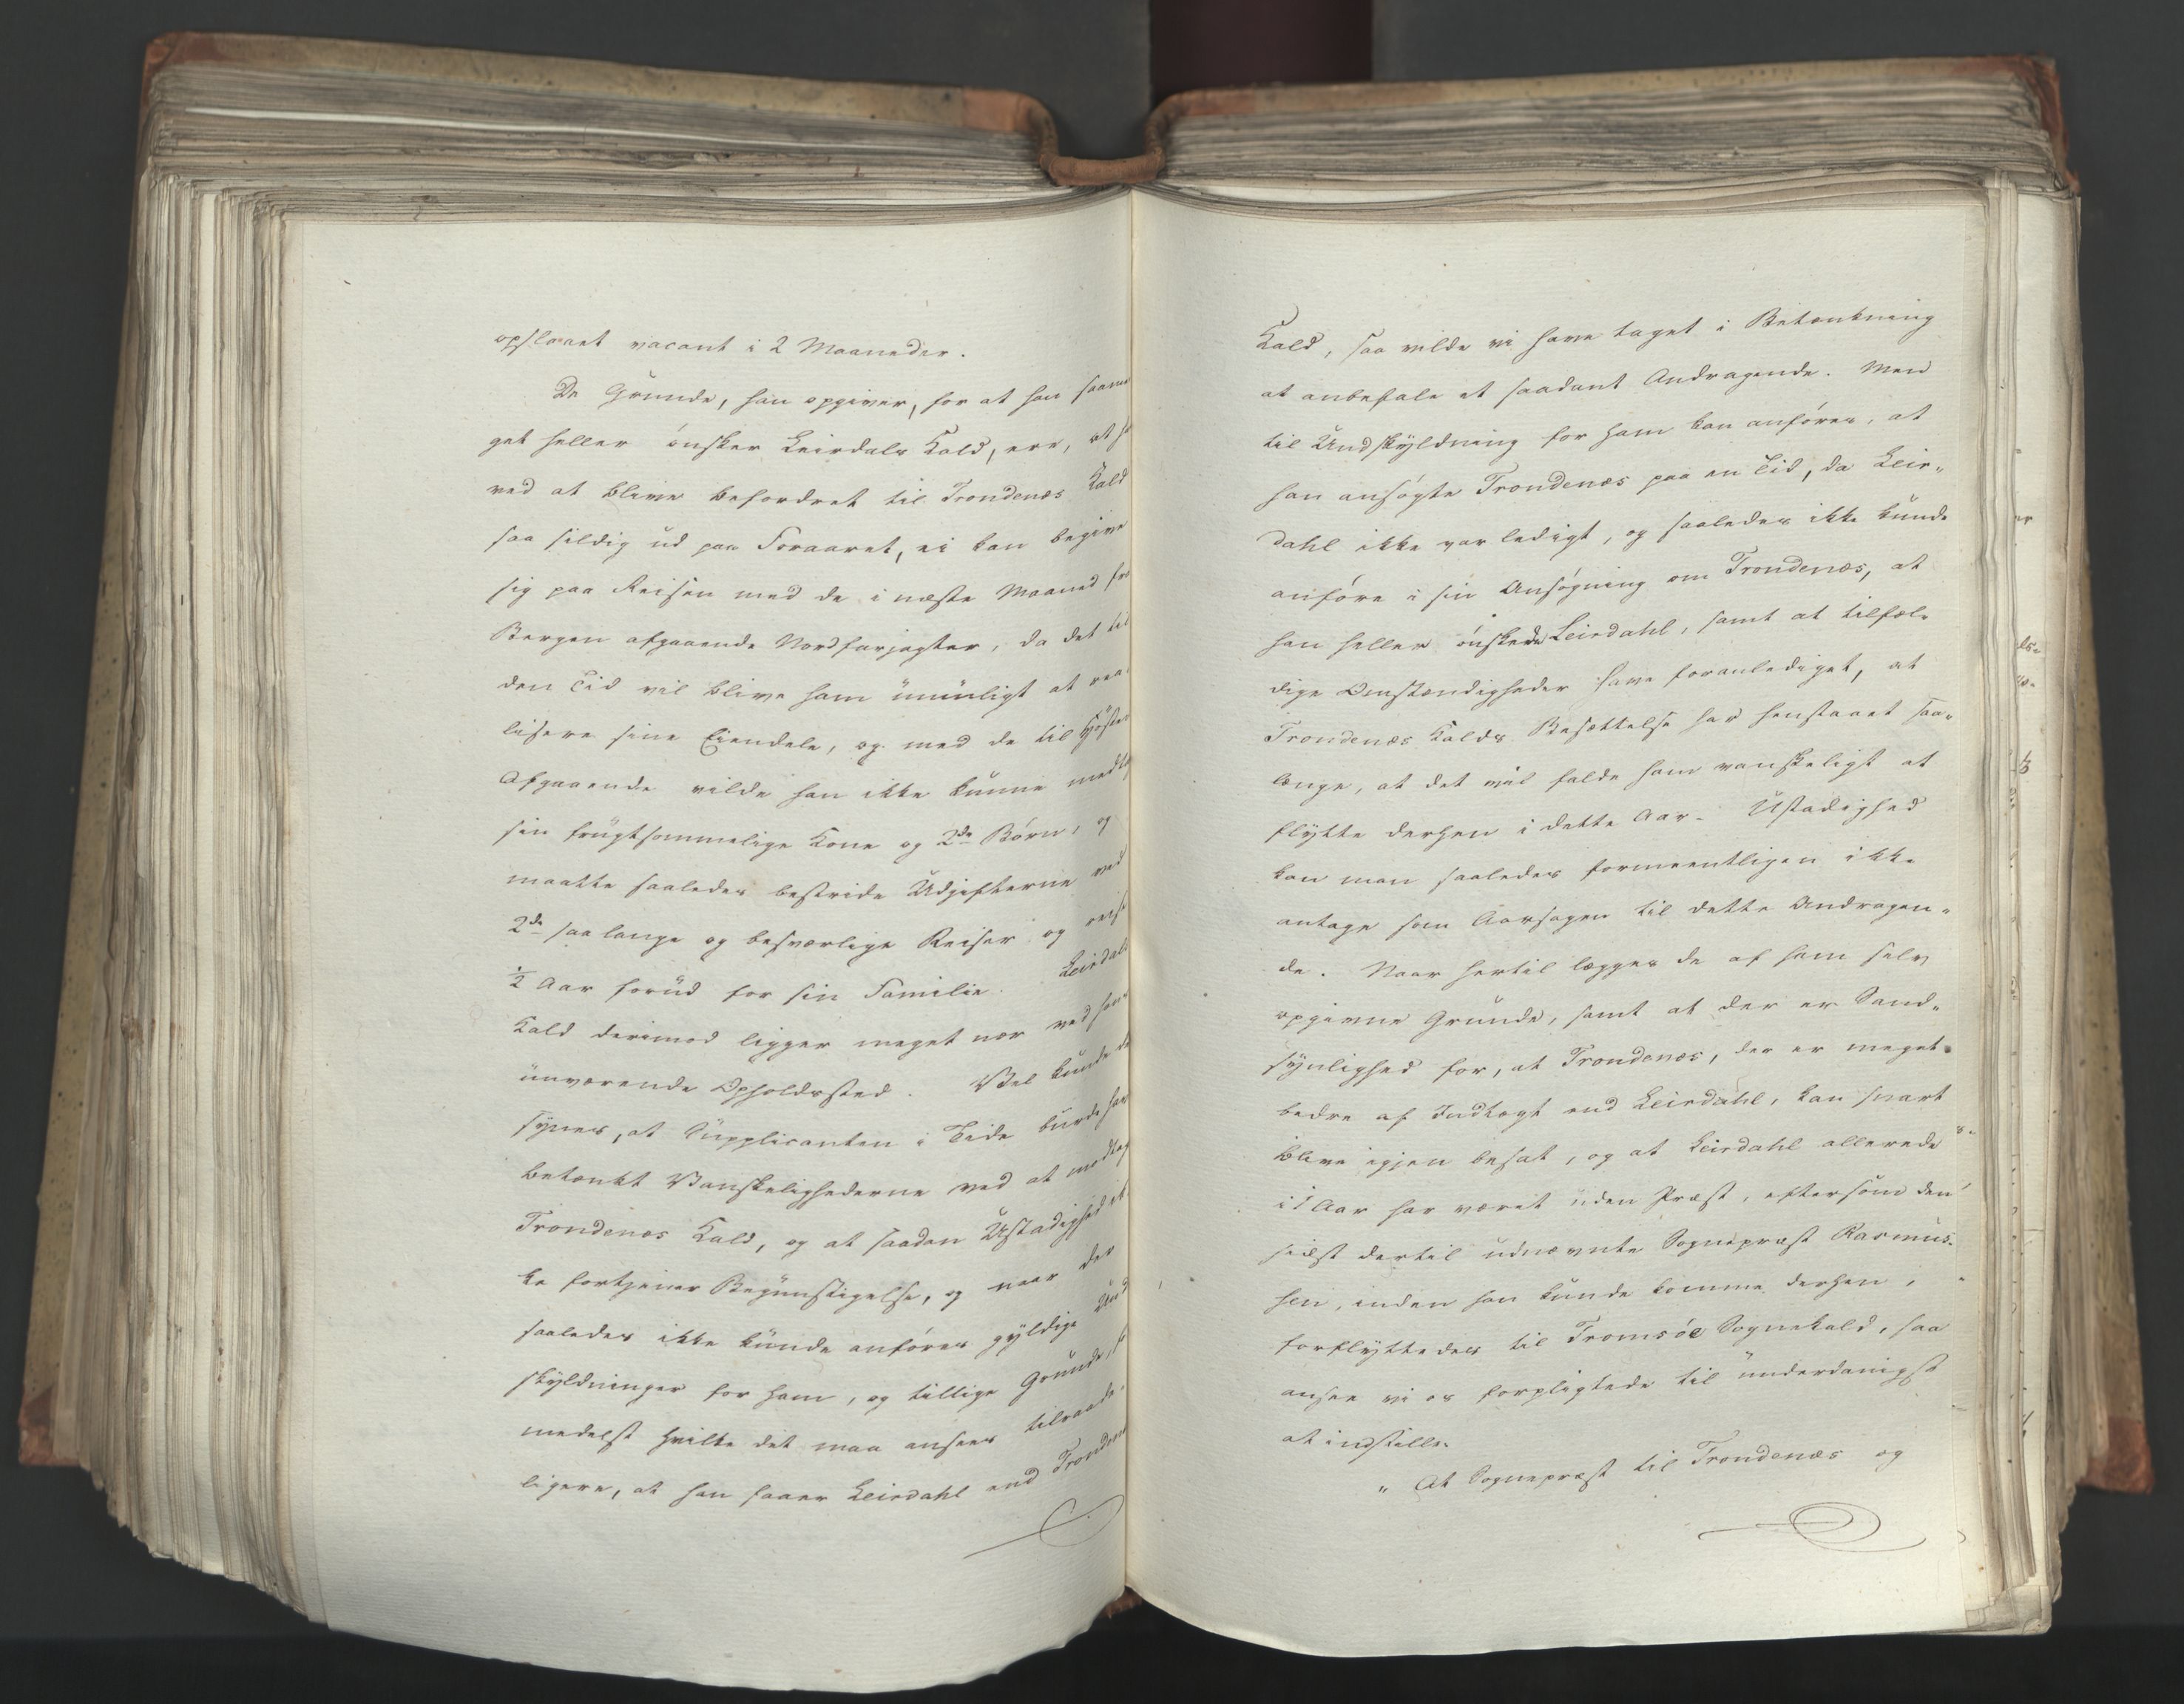 opslaaet vacant i 2 Maaneder.
De Grunde, han opgiver, for at han saame
get heller ønsker Leirdals Kald, ere, at ha
ved at blive befordret til Trondenæs Kald
saa sildig ud paa Foraaret, ei kan begive
sig paa Reisen med de i næste Maaned fra
Bergen afgaaende Nordfarjagter, da det til
den Tid vil blive ham umuligt at rea-
lisere sine Eiendele, og med de til Høsten
Afgaaende vilde han ikke kunne medta
sin frugtsommelige Kone og 2de Børn, og
maatte saaledes bestride Udgifterne ved
2de saa lange og besværlige Reiser og reise
½ Aar forud for sin Familie. Leirdals
Kald derimod ligger meget nær ved hans
nuværende Opholdssted. Vel kunde de
synes, at Supplicanten i Tide burde hav
betænkt Vanskelighederne ved at modtag
Trondenæs Kald, og at saadan Ustadighed ik
ke fortjener Begunstigelse, og naar der
saaledes ikke kunde anføres gyldige Und
skyldninger for ham, og tillige Grunde, for
medelst hvilke det maa ansees tilraade-
ligere, at han faaer Leirdahl end Trondenæs
Kald, saa vilde vi have taget i Betænkning
at anbefale et saadant Andragende. Men
til Undskyldning for ham kan anføres, at
han ansøgte Trondenæs paa en Tid, da Leir-
dahl ikke var ledigt, og saaledes ikke kunde
anføre i sin Ansøgning om Trondenæs, at
han heller ønskede Leirdahl, samt at tilfæl-
dige Omstændigheder have foranlediget, at
Trondenæs Kalds Besættelse har henstaaet saa-
længe, at det vil falde ham vanskeligt at
flytte derhen i dette Aar. Ustadighed
kan man saaledes formeentligen ikke
antage som Aarsagen til dette Andragen-
de. Naar hertil lægges de af ham selv
opgivne Grunde, samt at der er Sand-
synlighed for, at Trondenæs, der er meget
bedre af Indtægt end Leirdahl, kan snart
blive igjen besat, og at Leirdahl allerede
i 1 Aar har været uden Præst, eftersom den
sidst dertil udnævnte Sognepræst Rasmus-
sen, inden han kunde komme derhen,
forflyttedes til Tromsøe Sognekald, saa
ansee vi os forpligtede til underdanigst
at indstille.
" At Sognepræst til Trondenæs og